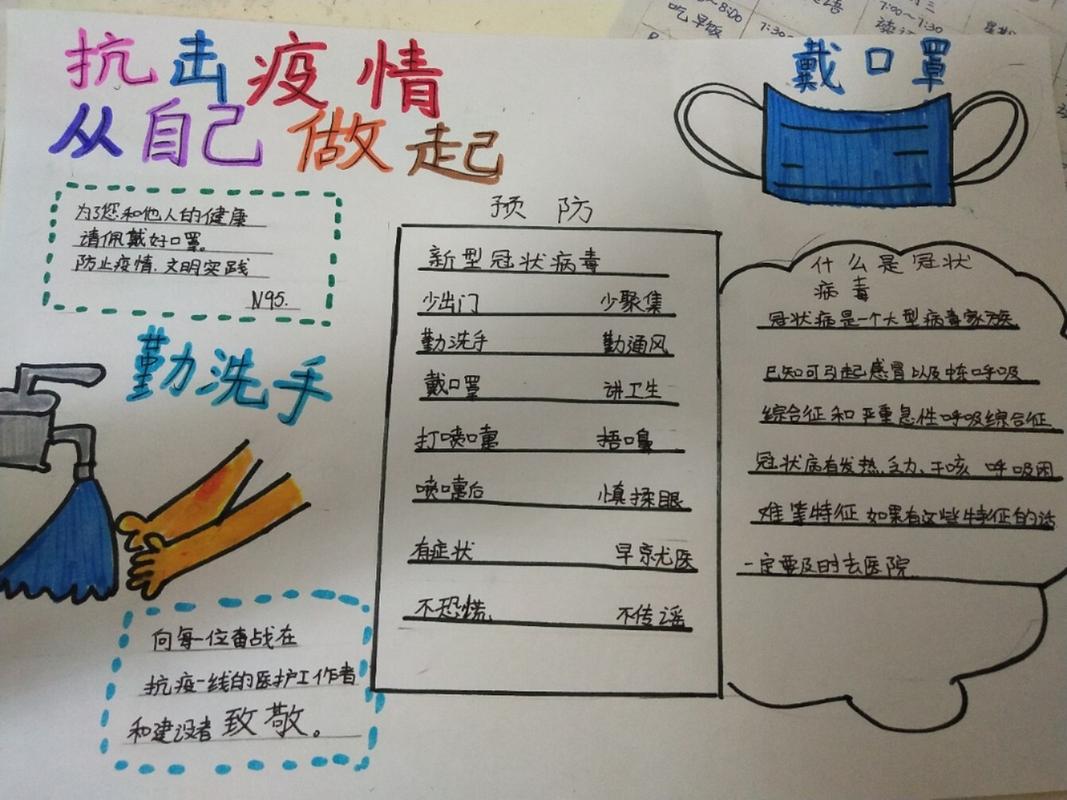 抗击疫情
从自己做起
戴口罩
为了您和他人的健康
请佩戴好口罩。
防止疫情.文明实践
N95.
勤洗手
向每一位奋战在
抗疫一线的医护工作者
和建设者致敬。
预防
新型冠状病毒
少出门 少聚集
勤洗手 勤通风
戴口罩 讲卫生
打喷嚏 捂口鼻
喷嚏后 慎揉眼
有症状 早就医
不恐慌. 不传谣
什么是冠状
病毒
冠状病是一个大型病毒家族
已知可引起感冒以及 呼吸
综合征和严重急性呼吸综合征.
冠状病有发热.乏力.干咳 呼吸困
难等特征 如果有这些特征的话
一定要及时去医院
7:00~7:30
~8:00
吃早饭